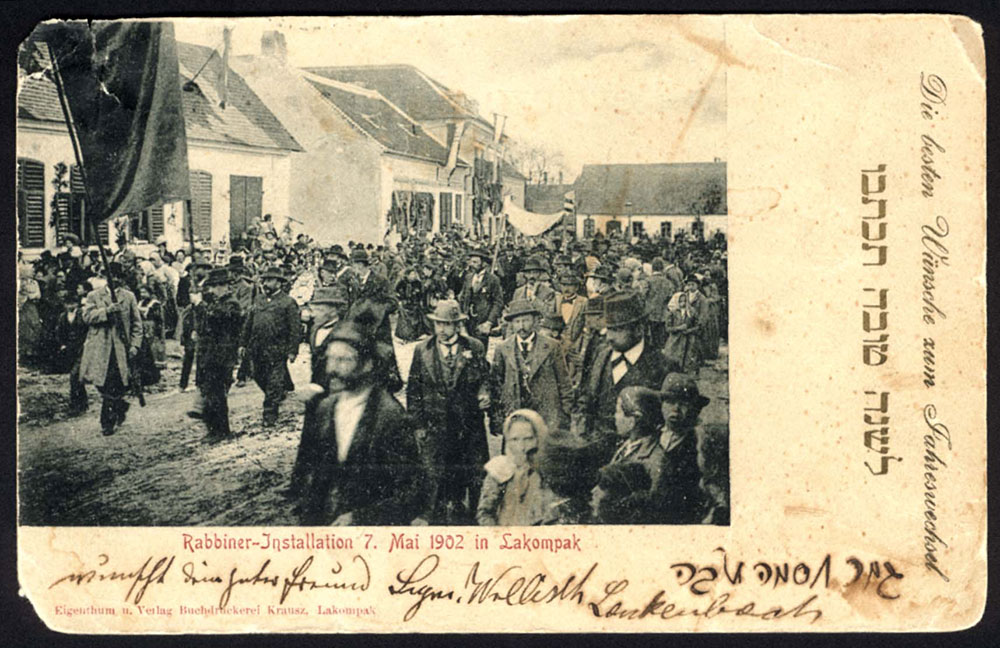 Die besten Wünsche zum Jahreswechsel
לשנה טובה תכתבו
Rabbiner-Installation 7. Mai 1902 in Lakompak
wünscht dein guter Freund Sigm. Wellisch
Lackenbach
Eigenthum u. Verlag Buchdruckerei Krausz, Lakompak